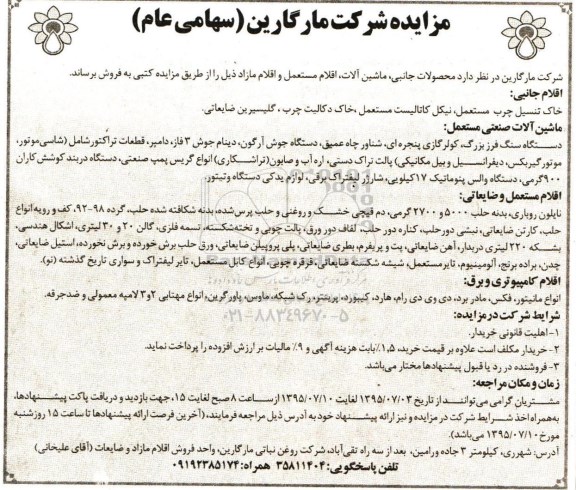 مزایده شرکت مارگارین (سهامی عام)
شرکت مارگارین در نظر دارد محصولات جانبی، ماشین آلات، اقلام مستعمل و اقلام مازاد ذیل را از طریق مزایده کتبی به فروش برساند.
اقلام جانبی:
خاک تنسیل چرب مستعمل، نیکل کاتالیست مستعمل، خاک دکالیت چرب، گلیسیرین ضایعاتی.
ماشین آلات صنعتی مستعمل:
دستگاه سنگ فرز بزرگ، کولر گازی پنجره ای، شناور چاه عمیق، دستگاه جوش آرگون، دینام جوش ۳ فاز، دامپر، قطعات تراکتور شامل (شاسی موتور،
موتور گیربکس، دیفرانسیل و بیل مکانیکی) پالت تراک دستی، اره آب و صابون (تراشکاری) انواع گریس پمپ صنعتی، دستگاه دربند کوشش کاران
۹۰۰ گرمی، دستگاه والس پنوماتیک ۱۷ کیلویی، شارژر لیفتراک برقی، لوازم یدکی دستگاه وتیتور.
اقلام مستعمل و ضایعاتی:
نایلون روباری، بدنه حلب ۵۰۰۰ و ۲۷۰۰ گرمی، دم قیچی خشک و روغنی و حلب پرس شده، بدنه شکافته شده حلب، گرده ۹۸-۹۲، کف و رویه انواع
حلب، کارتن ضایعاتی، نبشی دور حلب، کناره دور حلب، لفاف دور ورق، پالت چوبی و تخته شکسته، تسمه فلزی، گالن ۲۰ و ۳۰ لیتری، اشکال هندسی،
بشکه ۲۲۰ لیتری دربدار، آهن ضایعاتی، پت و پریفرم، بطری ضایعاتی، پلی پروپیلن ضایعاتی، ورق حلب برش خورده و برش نخورده، استیل ضایعاتی،
چدن، براده برنج، آلومینیوم، تایر مستعمل، شیشه شکسته ضایعاتی، قرقره چوبی، انواع کابل مستعمل، تایر لیفتراک و سواری تاریخ گذشته (نو).
اقلام کامپیوتری و برق:
انواع مانیتور، فکس، مادر برد، دی وی دی رام، هارد، کیبورد، پرینتر، رک شبکه، ماوس، پاورگرین، انواع مهتابی ۲ و ۳ لامپه معمولی و ضدجرقه.
شرایط شرکت در مزایده:
۱-اهلیت قانونی خریدار.
۲- خریدار مکلف است علاوه بر قیمت خرید، ۱,۵٪ بابت هزینه آگهی و ۹٪ مالیات بر ارزش افزوده را پرداخت نماید.
۳- فروشنده در رد یا قبول پیشنهادها مختار می‌باشد.
زمان و مکان مراجعه:
مشتریان گرامی می‌توانند از تاریخ ۱۳۹۵/۰۷/۰۳ لغایت ۱۳۹۵/۰۷/۱۰ از ساعت ۸ صبح لغایت ۱۵، جهت بازدید و دریافت پاکت پیشنهادها،
به همراه اخذ شرایط شرکت در مزایده و نیز ارائه پیشنهاد خود به آدرس ذیل مراجعه فرمایند، (آخرین فرصت ارائه پیشنهادها تا ساعت ۱۵ روز شنبه
مورخ ۱۳۹۵/۰۷/۱۰ می‌باشد).
آدرس: شهرری، کیلومتر ۳ جاده ورامین، بعد از سه راه تقی‌آباد، شرکت روغن نباتی مارگارین، واحد فروش اقلام مازاد و ضایعات (آقای علیخانی)
تلفن پاسخگویی: ۳۵۸۱۱۴۰۴ همراه: ۰۹۱۹۲۳۸۵۱۷۴
۰۲۱-۸۸۳۴۹۶۷۰-۵